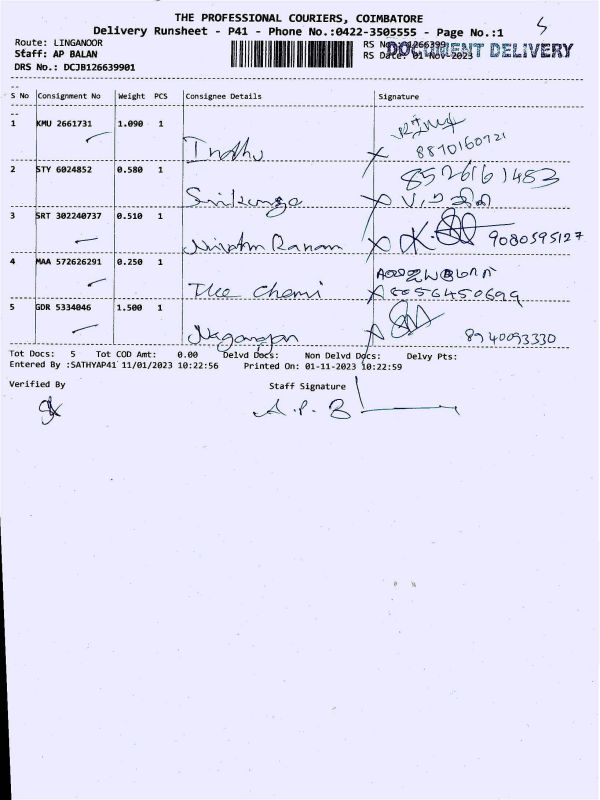 THE PROFESSIONAL COURIERS, COIMBATORE
5
Delivery Runsheet - P41 - Phone No.:0422-3505555 - Page No.:1
Route: LINGANOOR
RS No
DOCUMENT DELIVERY
Staff: AP BALAN
RS Date: 01-Nov-2023
DRS No.: DCJB126639901
S No Consignment No Weight PCS Consignee Details Signature
1 KMU 2661731 1.090 1 Indhu 8870160721
2 STY 6024852 0.580 1 8526161483
3 SRT 302240737 0.510 1 9080595127
4 MAA 572626291 0.250 1 The Chemi 8056450699
5 GDR 5334046 1.500 1 8940093330
Tot Docs: 5 Tot COD Amt: 0.00 Delvd Docs: Non Delvd Docs: Delvy Pts:
Entered By :SATHYAP41 11/01/2023 10:22:56 Printed On: 01-11-2023 10:22:59
Verified By Staff Signature
A.P.B